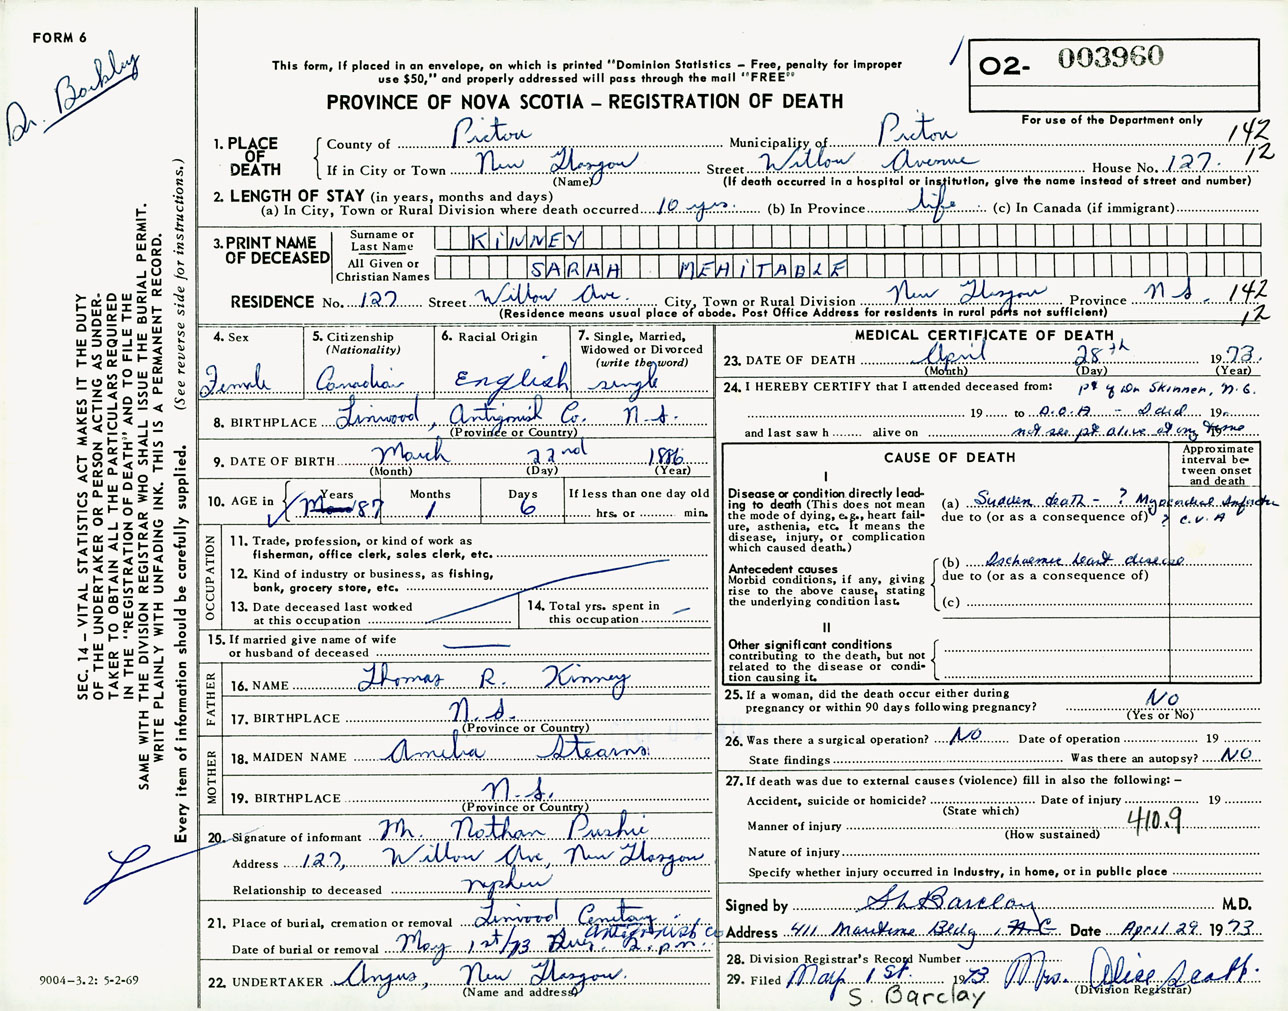 FORM 6
Dr. Barkley
This form, if placed in an envelope, on which is printed "Dominion Statistics – Free, penalty for improper
use $50," and properly addressed will pass through the mail "FREE"
O2- 003960
For use of the Department only
PROVINCE OF NOVA SCOTIA – REGISTRATION OF DEATH
142
12
1. PLACE OF DEATH
County of Pictou Municipality of Pictou
If in City or Town New Glasgow Street Willow Avenue House No. 127.
(Name) (If death occurred in a hospital or institution, give the name instead of street and number)
2. LENGTH OF STAY (in years, months and days)
(a) In City, Town or Rural Division where death occurred 10 yrs. (b) In Province life (c) In Canada (if immigrant)
3. PRINT NAME OF DECEASED
Surname or Last Name KINNEY
All Given or Christian Names SARAH MEHITABLE
RESIDENCE No. 127 Street Willow Ave. City, Town or Rural Division New Glasgow Province N.S. 142
(Residence means usual place of abode. Post Office Address for residents in rural parts not sufficient) 12
4. Sex
Female
5. Citizenship
(Nationality)
Canadian
6. Racial Origin
English
7. Single, Married,
Widowed or Divorced
(write the word)
single
8. BIRTHPLACE Linwood, Antigonish Co. N.S.
(Province or Country)
9. DATE OF BIRTH March 22nd 1886
(Month) (Day) (Year)
10. AGE in Years 87 Months 1 Days 6 If less than one day old
hrs. or min.
OCCUPATION
11. Trade, profession, or kind of work as
fisherman, office clerk, sales clerk, etc.
12. Kind of industry or business, as fishing,
bank, grocery store, etc.
13. Date deceased last worked
at this occupation
14. Total yrs. spent in
this occupation
15. If married give name of wife
or husband of deceased
FATHER
16. NAME Thomas R. Kinney
17. BIRTHPLACE N.S.
(Province or Country)
MOTHER
18. MAIDEN NAME Amelia Stearns
19. BIRTHPLACE N.S.
(Province or Country)
20. Signature of informant Mr. Nathan Pushie
Address 127, Willow Ave, New Glasgow
Relationship to deceased nephew
21. Place of burial, cremation or removal Linwood Cemetary Antigonish Co
Date of burial or removal May 1st/73 2.p.m.
22. UNDERTAKER Angus, New Glasgow.
(Name and address)
MEDICAL CERTIFICATE OF DEATH
23. DATE OF DEATH April 28th 1973.
(Month) (Day) (Year)
24. I HEREBY CERTIFY that I attended deceased from: pt of Dr Skinner, N.G.
19 to D.O.A - I did 19
and last saw h alive on not see pt alive at any time 19
CAUSE OF DEATH
Approximate interval between onset and death
I
Disease or condition directly leading to death (This does not mean the mode of dying, e.g., heart failure, asthenia, etc. It means the disease, injury, or complication which caused death.)
(a) Sudden death - ? Myocardial Infarction
due to (or as a consequence of) ? C.V.A
Antecedent causes
Morbid conditions, if any, giving rise to the above cause, stating the underlying condition last.
(b) Ischaemic heart disease
due to (or as a consequence of)
(c)
II
Other significant conditions
contributing to the death, but not related to the disease or condition causing it.
25. If a woman, did the death occur either during
pregnancy or within 90 days following pregnancy? NO
(Yes or No)
26. Was there a surgical operation? NO Date of operation 19
State findings Was there an autopsy? NO
27. If death was due to external causes (violence) fill in also the following: –
Accident, suicide or homicide? Date of injury 19
(State which)
Manner of injury 410.9
(How sustained)
Nature of injury
Specify whether injury occurred in industry, in home, or in public place
Signed by Barclay M.D.
Address 411 Maritime Bldg, N.G. Date April 29 1973
28. Division Registrar's Record Number
29. Filed May 1st. 1973 Mrs. Alice Scott.
(Division Registrar)
S. Barclay
SEC. 14 – VITAL STATISTICS ACT MAKES IT THE DUTY
OF THE UNDERTAKER OR PERSON ACTING AS UNDER-
TAKER TO OBTAIN ALL THE PARTICULARS REQUIRED
IN THE "REGISTRATION OF DEATH" AND TO FILE THE
SAME WITH THE DIVISION REGISTRAR WHO SHALL ISSUE THE BURIAL PERMIT.
WRITE PLAINLY WITH UNFADING INK. THIS IS A PERMANENT RECORD.
Every item of information should be carefully supplied. (See reverse side for instructions.)
9004–3.2: 5-2-69